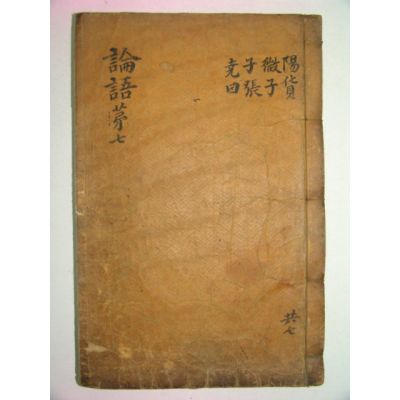 陽貨
微子
子張
尭曰
論語苐七
共七